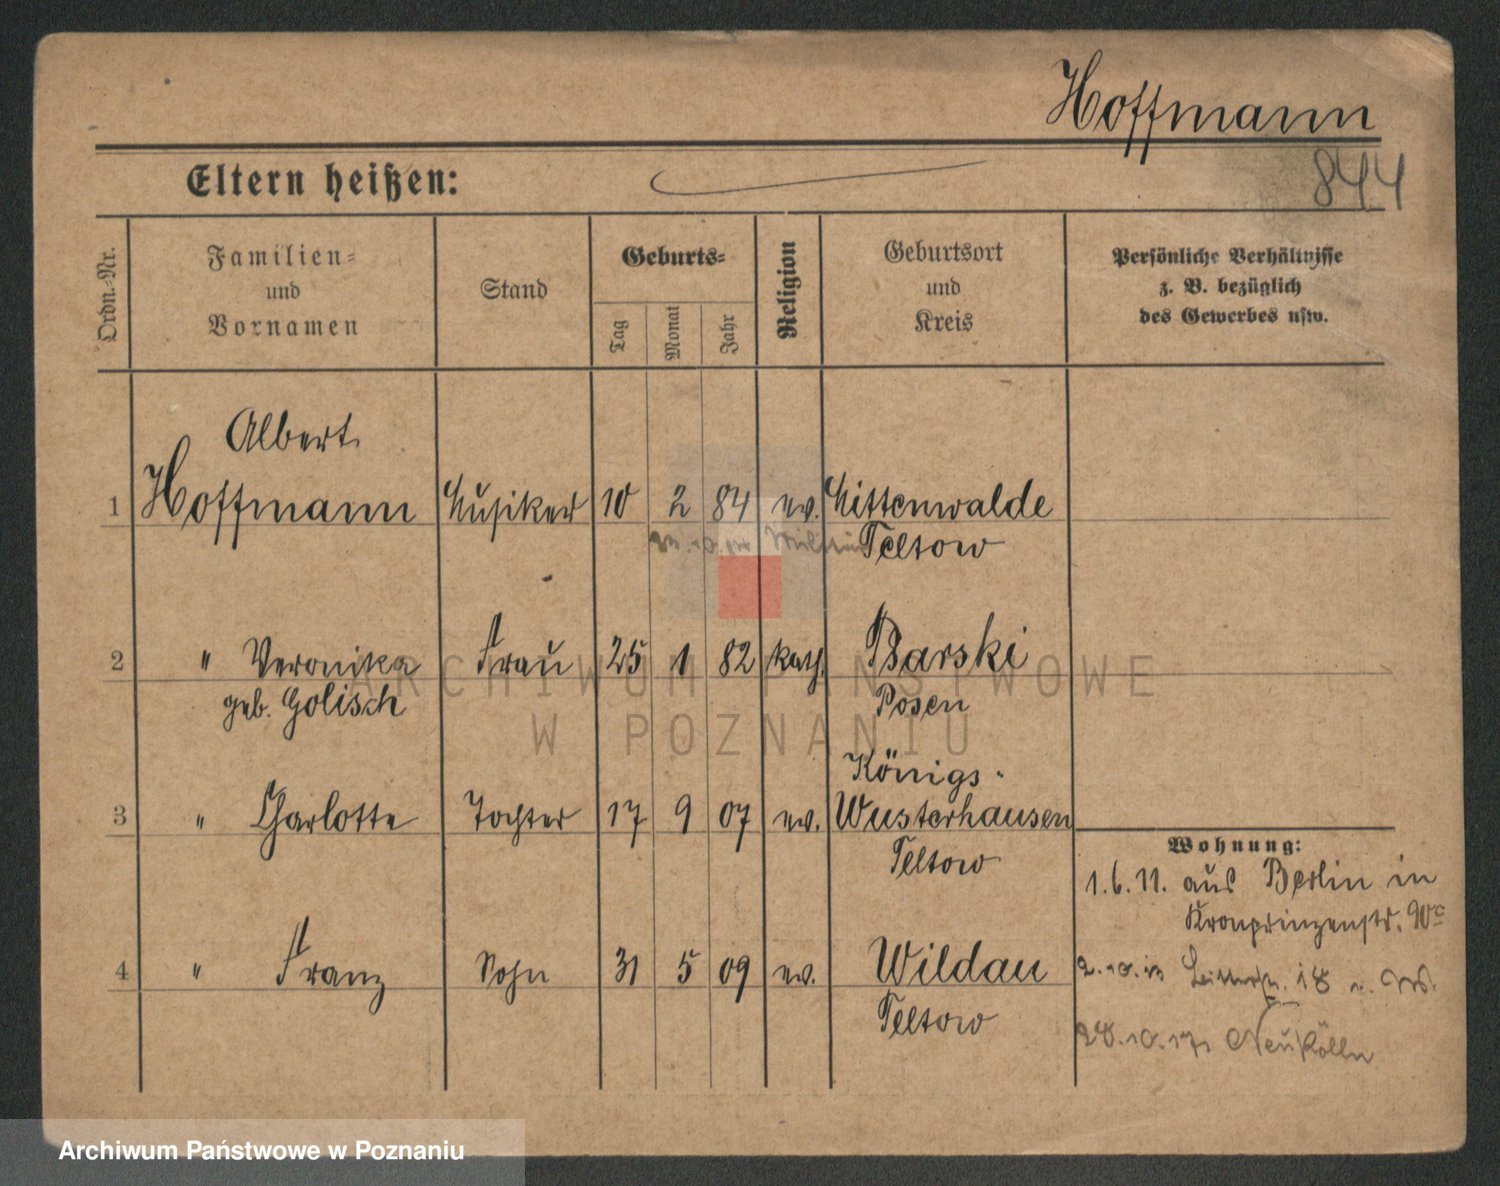 Hoffmann
844
Eltern heißen:
Ordn.-Nr.
Familien-
und
Vornamen
Stand
Geburts-
Tag
Monat
Jahr
Religion
Geburtsort
und
Kreis
Persönliche Verhältnisse
z. B. bezüglich
des Gewerbes usw.
Albert
1 Hoffmann Musiker 10 2 84 ev. Mittenwalde
Teltow
2 " Veronika Frau 25 1 82 kath. Barski
geb. Golisch Posen
Königs-
3 " Charlotte Tochter 17 9 07 ev. Wusterhausen
Teltow
4 " Franz Sohn 31 5 09 ev. Wildau
Teltow
Wohnung:
1.6.11. aus Berlin in
Kronprinzenstr. 90c
18
28.10.17 Neukölln
ARCHIWUM PAŃSTWOWE
W POZNANIU
Archiwum Państwowe w Poznaniu